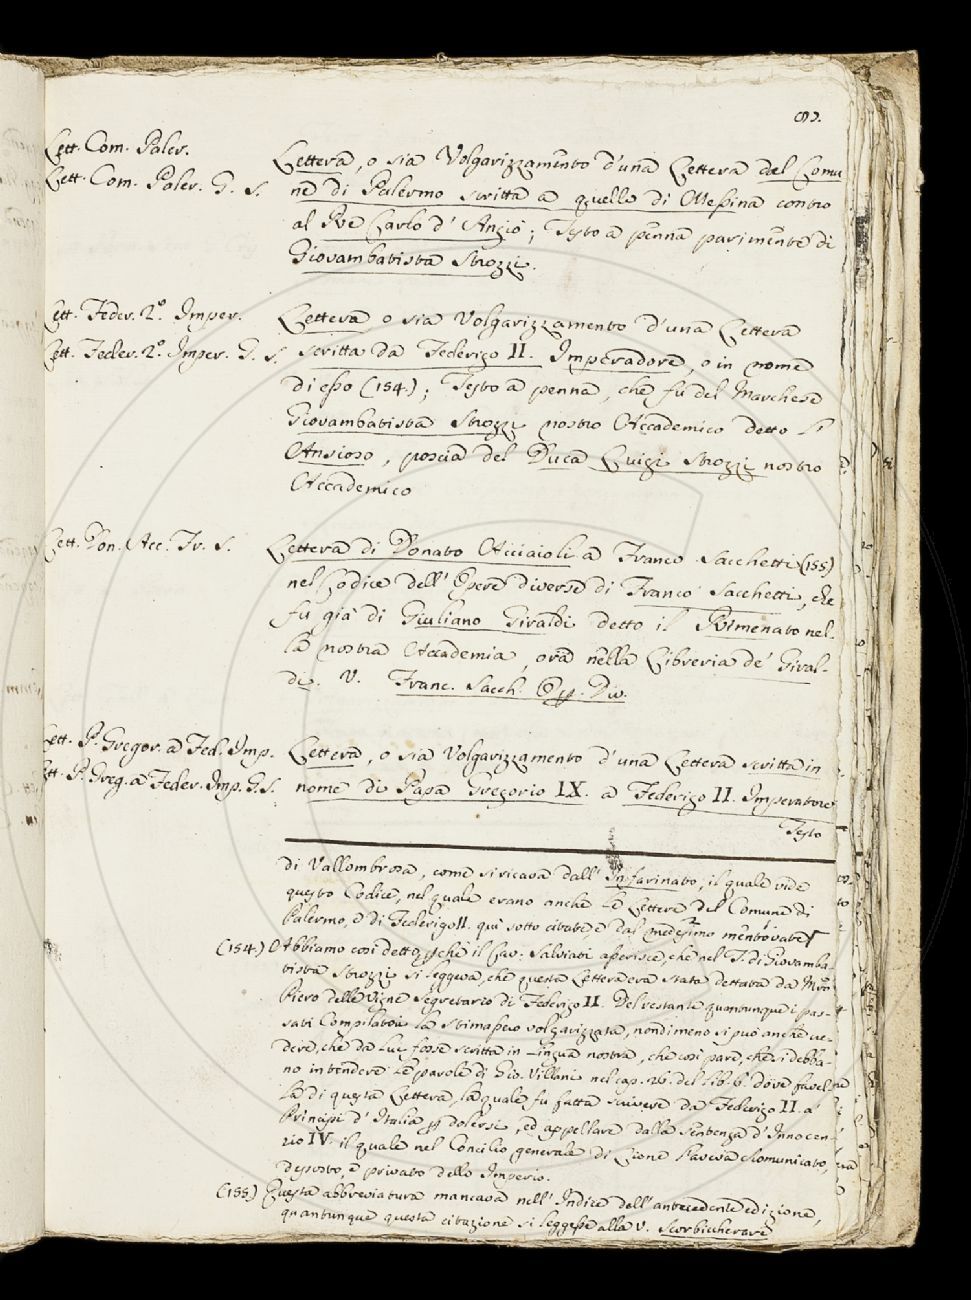 89.
Lett. Com. Paler.
Lett. Com. Paler. G. S.
Lettera, o sia Volgarizzamento d'una Lettera del Comu
ne di Palermo scritta a quello di Messina contro
al Re Carlo d'Angiò; Testo a penna parimente di
Giovambatista Strozzi.
Lett. Feder. 2.º Imper.
Lett. Feder. 2.º Imper. G. S.
Lettera o sia Volgarizzamento d'una Lettera
scritta da Federigo II. Imperadore, o in nome
di esso (154.); Testo a penna, che fu del Marchese
Giovambatista Strozzi nostro Accademico detto l'
Ansioso, poscia del Duca Luigi Strozzi nostro
Accademico
Lett. Don. Acc. Fr. S.
Lettera di Donato Acciaioli a Franco Sacchetti (155)
nel Codice dell' Opere diverse di Franco Sacchetti, che
fu già di Giuliano Giraldi detto il Rimenato nel-
la nostra Accademia, ora nella Libreria de' Giral-
di. V. Franc. Sacch. Op. Div.
Lett. P. Gregor. a Fed. Imp.
Lett. P. Greg. a Feder. Imp. G. S.
Lettera, o sia Volgarizzamento d'una Lettera scritta in
nome di Papa Gregorio IX. a Federigo II. Imperatore
Testo
di Vallombrosa, come si ricava dall' Infarinato, il quale vide
questo Codice, nel quale erano anche le Lettere del Comune di
Palermo, e di Federigo II. qui sotto citate, e dal medesimo mentovate
(154.) Abbiamo così detto, pchè il Cav: Salviati asserisce, che nel T. di Giovamba-
tista Strozzi si leggeva, che questa Lettera era stata dettata da Mro
Piero delle Vigne Segretario di Federigo II. Del restante quantunque i pas-
sati Compilatori la stimassero volgarizzata, nondimeno si può anche cre-
dere, che da lui fosse scritta in Lingua nostra, che così pare, che si debba-
no intendere le parole di Gio. Villani nel cap. 26. del lib. 6. dove favel-
la di questa Lettera, la quale fu fatta scrivere da Federigo II. a'
Principi d'Italia p dolersi, ed appellare dalla sentenza d'Innocen-
zio IV. il quale nel Concilio generale di Lione l'aveva scomunicato,
deposto, e privato dello Imperio.
(155) Questa abbreviatura mancava nell' Indice dell' antecedente edizione,
quantunque questa citazione si leggesse alla V. Scorbiccherare